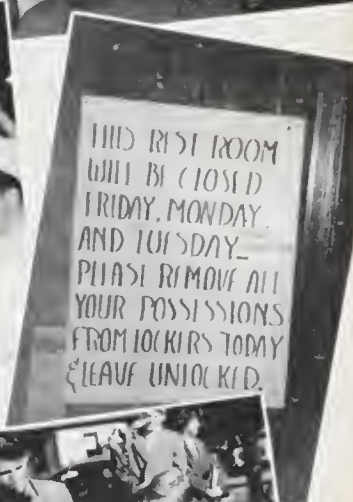 THIS REST ROOM
WILL BE CLOSED
FRIDAY, MONDAY
AND TUESDAY_
PLEASE REMOVE ALL
YOUR POSSESSIONS
FROM LOCKERS TODAY
& LEAVE UNLOCKED.